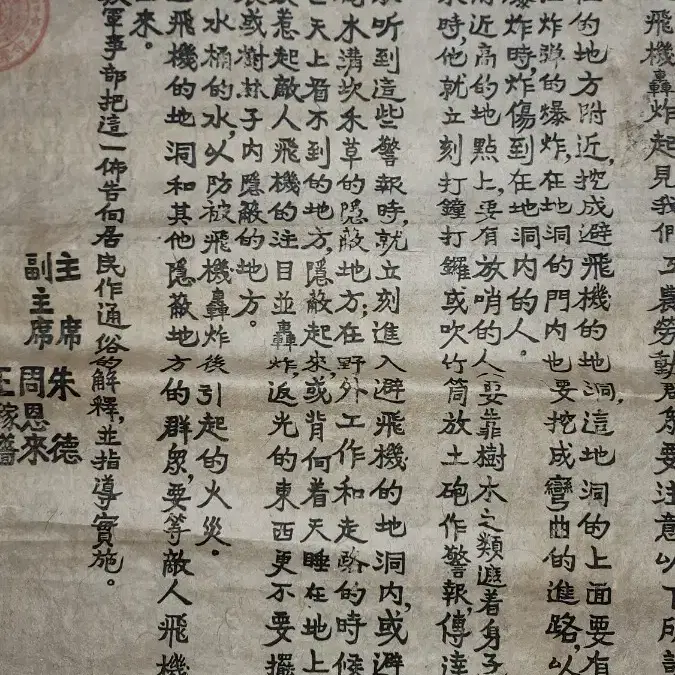 飛機轟炸起見我們工農勞動群衆要注意以下所說
的地方附近,挖成避飛機的地洞,這地洞的上面要有
炸弹的爆炸,在地洞的門内也要挖成彎曲的進路,以
爆炸時,炸傷到在地洞内的人。
附近高的地點上,要有放哨的人(要靠樹木之類遮着身子
時,他就立刻打鐘打鑼或吹竹筒放土砲作警報,傳達
听到這些警報時,就立刻進入避飛機的地洞内,或避
木溝坎禾草的隱蔽地方;在野外工作和走路的時候
天上看不到的地方,隱蔽起來,或背向着天睡在地上
惹起敵人飛機的注目並轟炸返光的東西更不要擺
或樹林子内隱蔽的地方。
水桶的水,以防被飛機轟炸後引起的火災.
飛機的地洞和其他隱蔽地方的群眾,要等敵人飛機
來。
軍事部把這一佈告向居民作通俗的解釋,並指導實施。
主席 朱德
副主席 周恩來
王稼薔